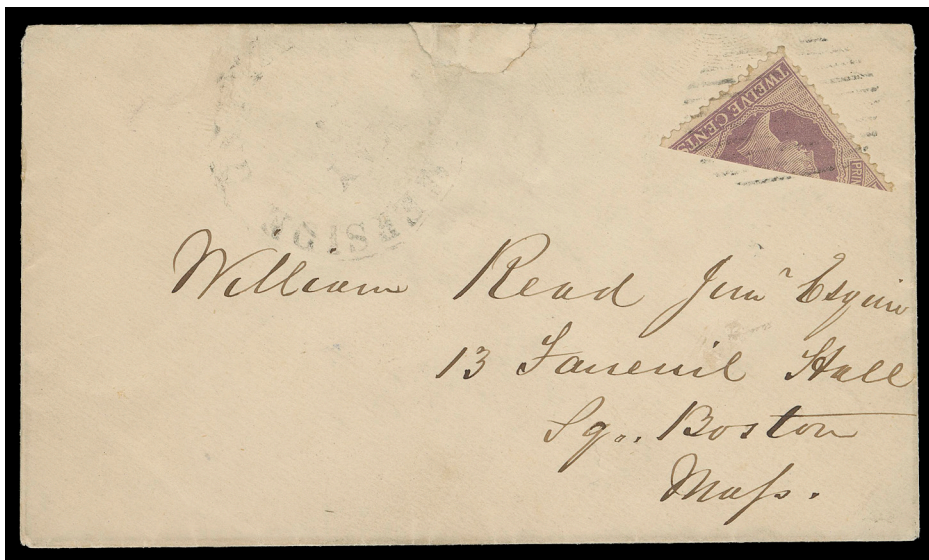 TWELVE CENTS
PRIN
William Read Junr Esquire
13 Faneuil Hall
Sq.. Boston
Mass.